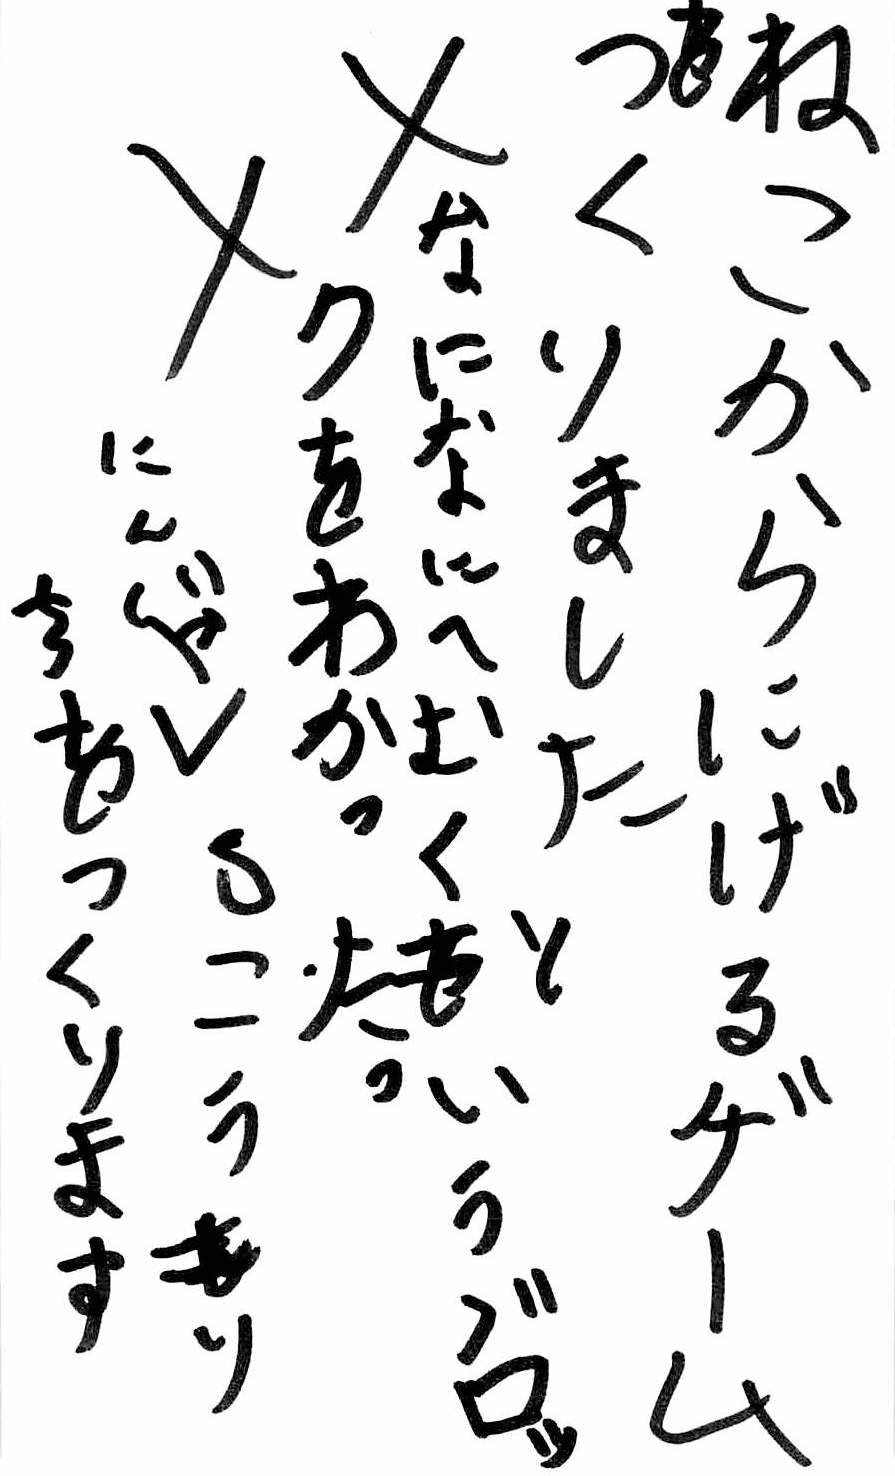 ねこからにげるゲーム
をつくりました
×なになにへむくというブロッ
クをわかった
×にんじゃVSこうもり
をつくります